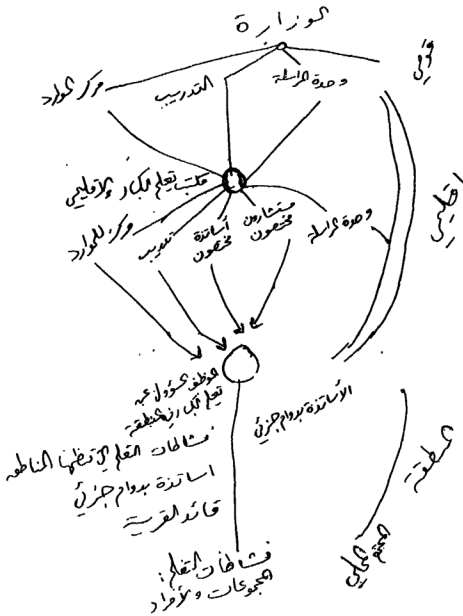 الوزارة
قومي
مركز الموارد
التدريب
وحدة المراسلة
مكتب تعلم الكبار الإقليمي
إقليمي
مركز الموارد
تدريب
أساتذة مختصون
مستشارون مختصون
وحدة المراسلة
الموظف المسؤول عن
تعلم الكبار في المنطقة
الأساتذة بدوام جزئي
المنطقة
نشاطات التعلم التي تنظمها المناطق
أساتذة بدوام جزئي
قائد القرية
المجتمع المحلي
نشاطات التعلم:
المجموعات والأفراد